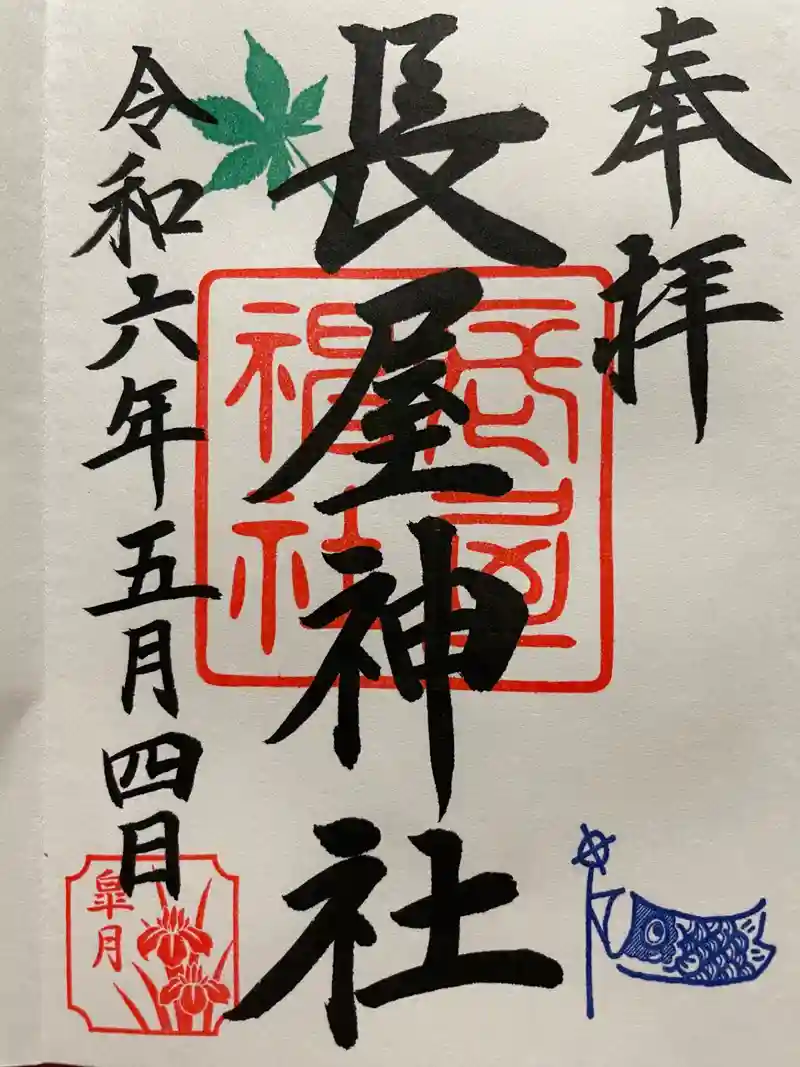 奉拝
長屋神社
長屋
神社
令和六年五月四日
皐月